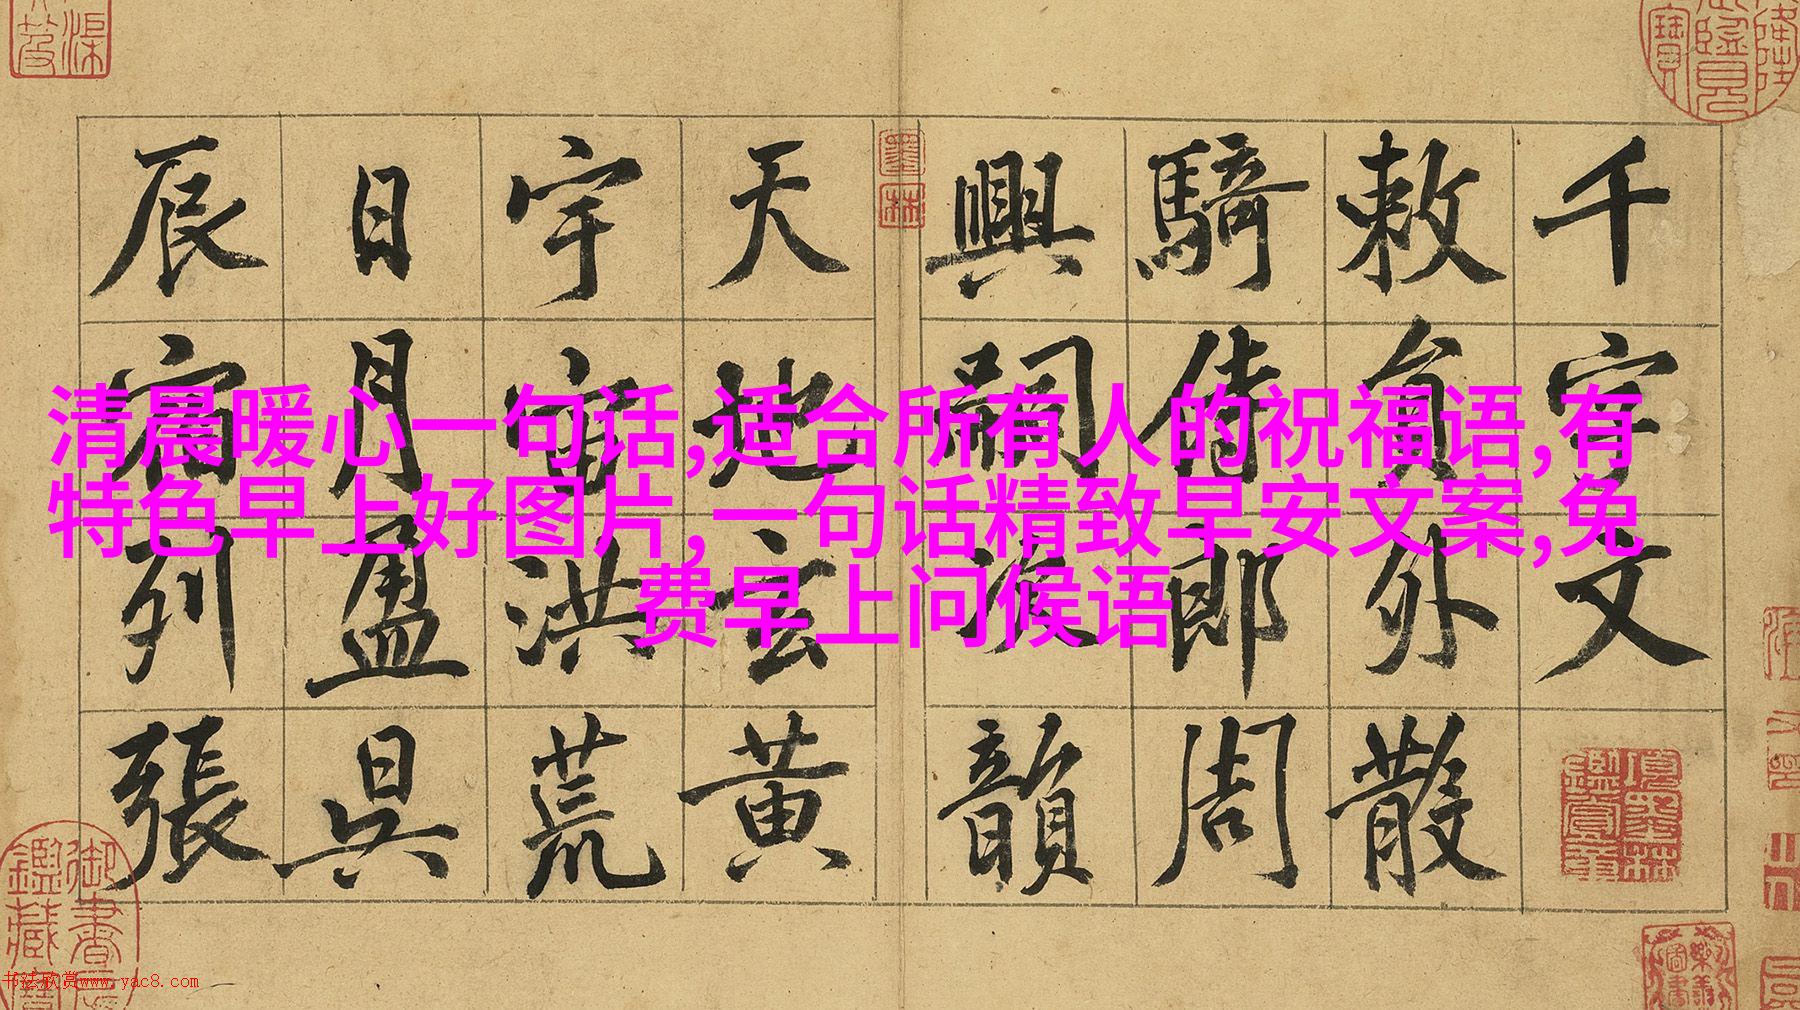 清晨暖心一句话,适合所有人的祝福语,有
特色早上好图片,一句话精致早安文案,免
费早上问候语
千字文
敕員外散
騎侍郎周
興嗣次韻
天地玄黄
宇宙洪荒
日月盈昃
辰宿列張
墨林
項墨林鑑賞章
书法欣赏www.yac8.com